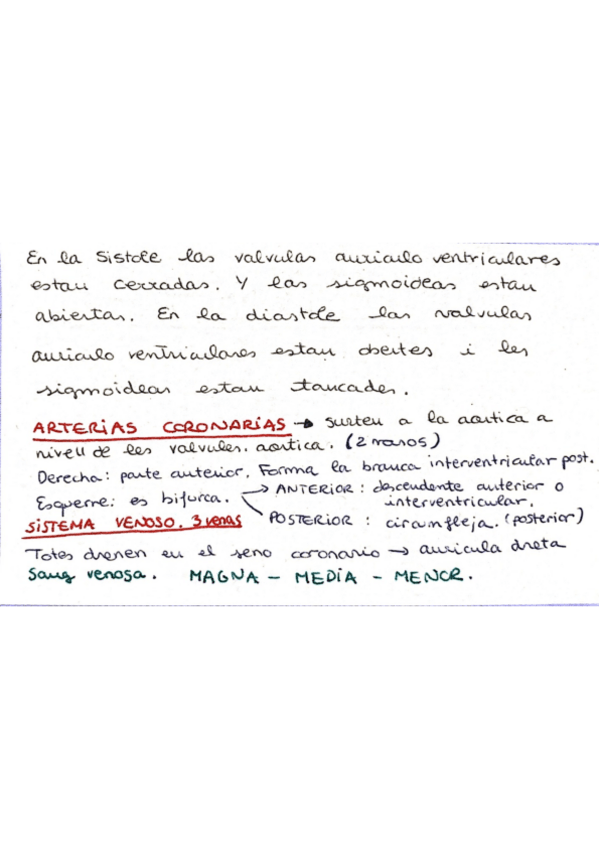 En la Sistole las valvulas auriculo ventriculares
estan cerradas. Y las sigmoideas estan
abiertas. En la diastole las valvulas
auriculo ventriculares estan obertes i les
sigmoideas estan tancades.
ARTERIAS CORONARIAS → surten a la aortica a
nivell de les valvules. aortica. (2 ramos)
Derecha: parte anterior. Forma la branca interventricular post.
Esquerre: es bifurca. → ANTERIOR: descendente anterior o
interventricular.
SISTEMA VENOSO. 3 venas POSTERIOR: circumfleja. (posterior)
Totes drenen en el seno coronario → auricula dreta
Sang venosa. MAGNA - MEDIA - MENOR.